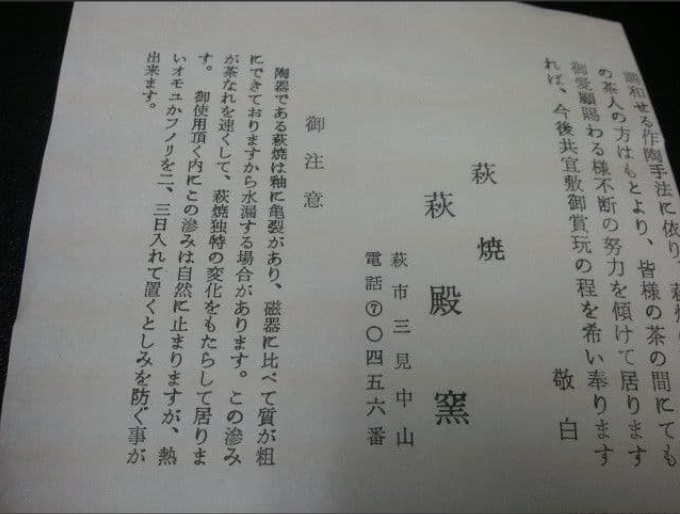 調和せる作陶手法に依り、萩焼
の茶人の方はもとより、皆様の茶の間にても
御愛顧賜わる様不断の努力を傾けて居ります
れば、今後共宜敷御賞玩の程を希い奉ります
敬白
萩焼
萩殿窯
萩市三見中山
電話⑦〇四五六番
御注意
陶器である萩焼は釉に亀裂があり、磁器に比べて質が粗
にできておりますから水漏する場合があります。この滲み
が茶なれを速くして、萩焼独特の変化をもたらして居りま
す。御使用頂く内にこの滲みは自然に止まりますが、熱
いオモユかフノリを二、三日入れて置くとしみを防ぐ事が
出来ます。